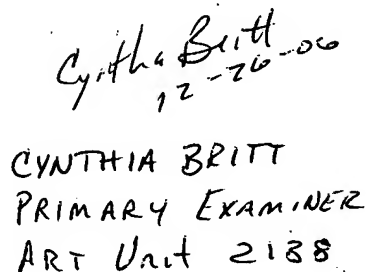 Cynthia Britt
12-26-06
CYNTHIA BRITT
PRIMARY EXAMINER
ART Unit 2138